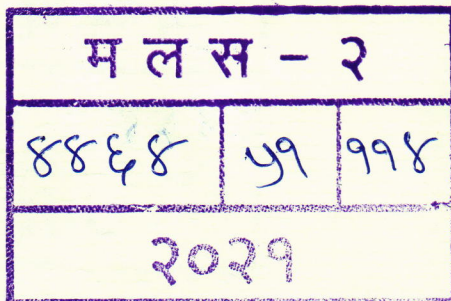 मलस - २
४४६४ ५१ ११४
२०२१